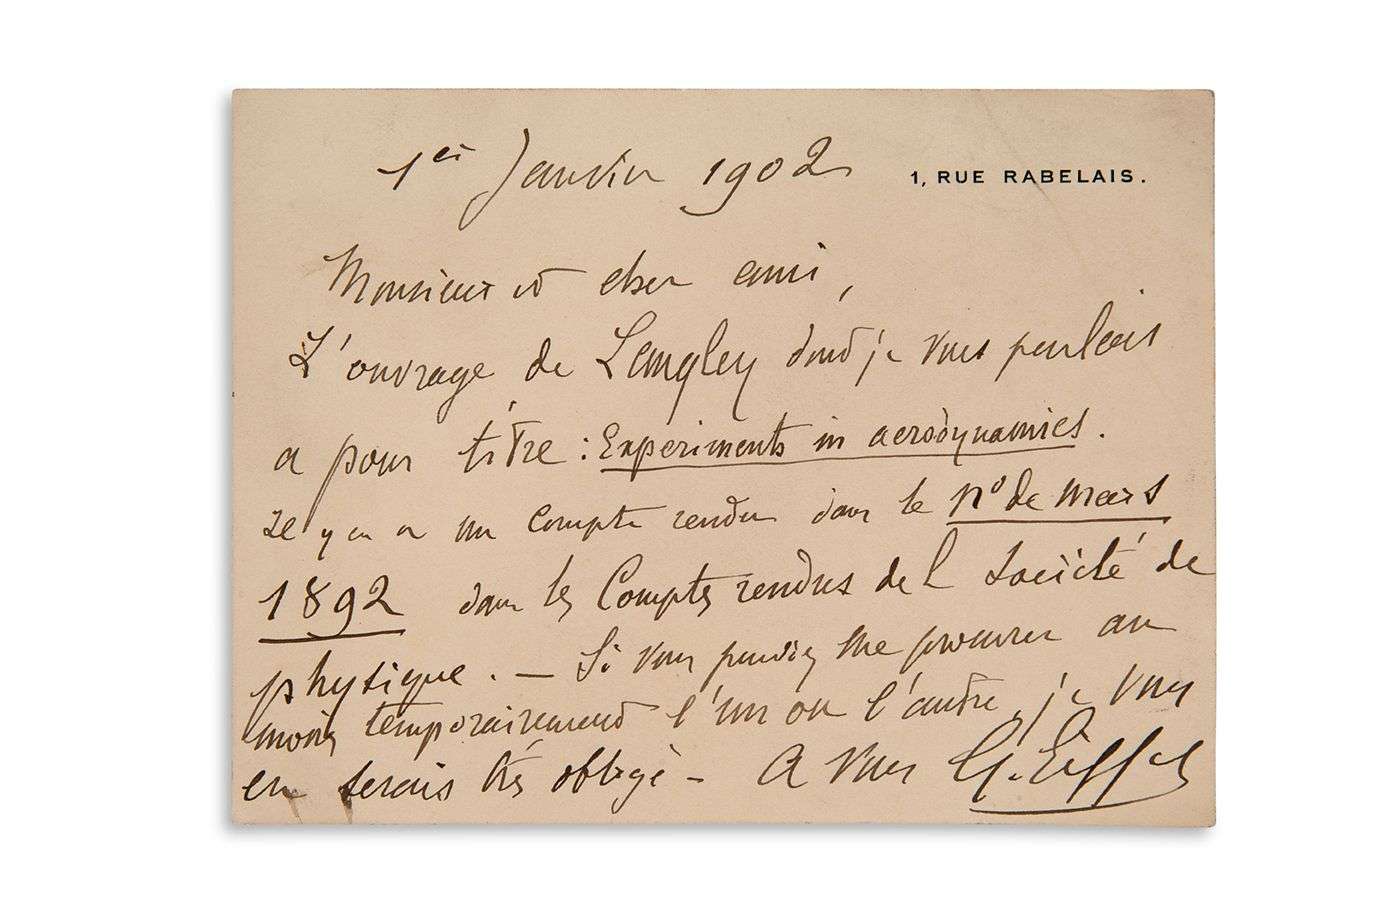 1er Janvier 1902
1, RUE RABELAIS.
Monsieur et cher ami,
L'ouvrage de Langley dont je vous parlais
a pour titre : Experiments in aerodynamics.
Il y en a un compte rendu dans le no de mars
1892 dans les Comptes rendus de la Société de
physique. — Si vous pouviez me procurer au
moins temporairement l'un ou l'autre, je vous
en serais très obligé — A vous G. Eiffel